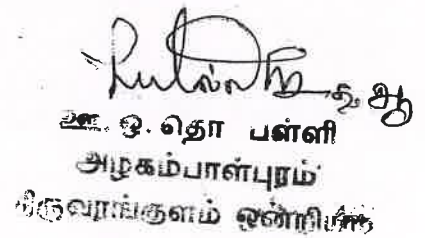 த. ஆ
ஊ. ஒ. தொ பள்ளி
அழகம்பாள்புரம்
திருவரங்குளம் ஒன்றியம்